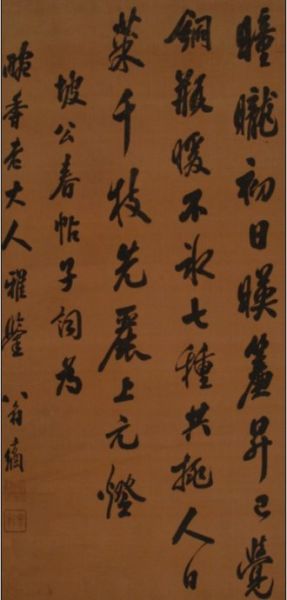 曈曨初日暎簾昇已覺
銅瓶暖不冰七種共挑人日
菜千枝先麗上元燈
坡公春帖子詞為
老大人雅鑒